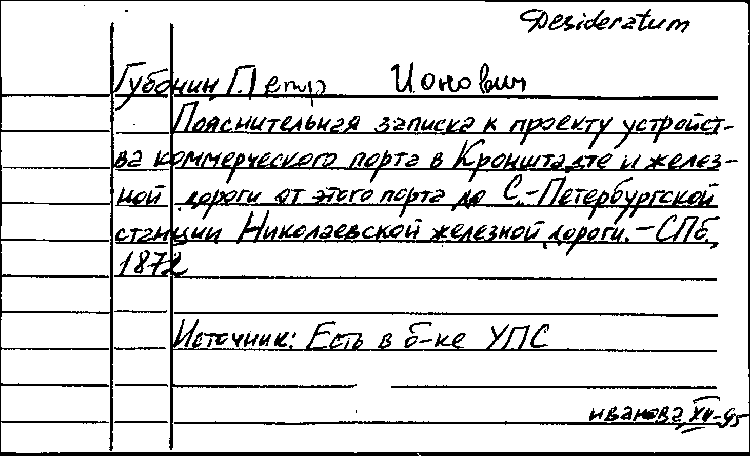 Desideratum
Губонин Петр Ионович
Пояснительная записка к проекту устройст-
ва коммерческого порта в Кронштадте и желез-
ной дороги от этого порта до С.-Петербургской
станции Николаевской железной дороги. - СПб.,
1872
Источник: Есть в б-ке УПС
иванова XII-95